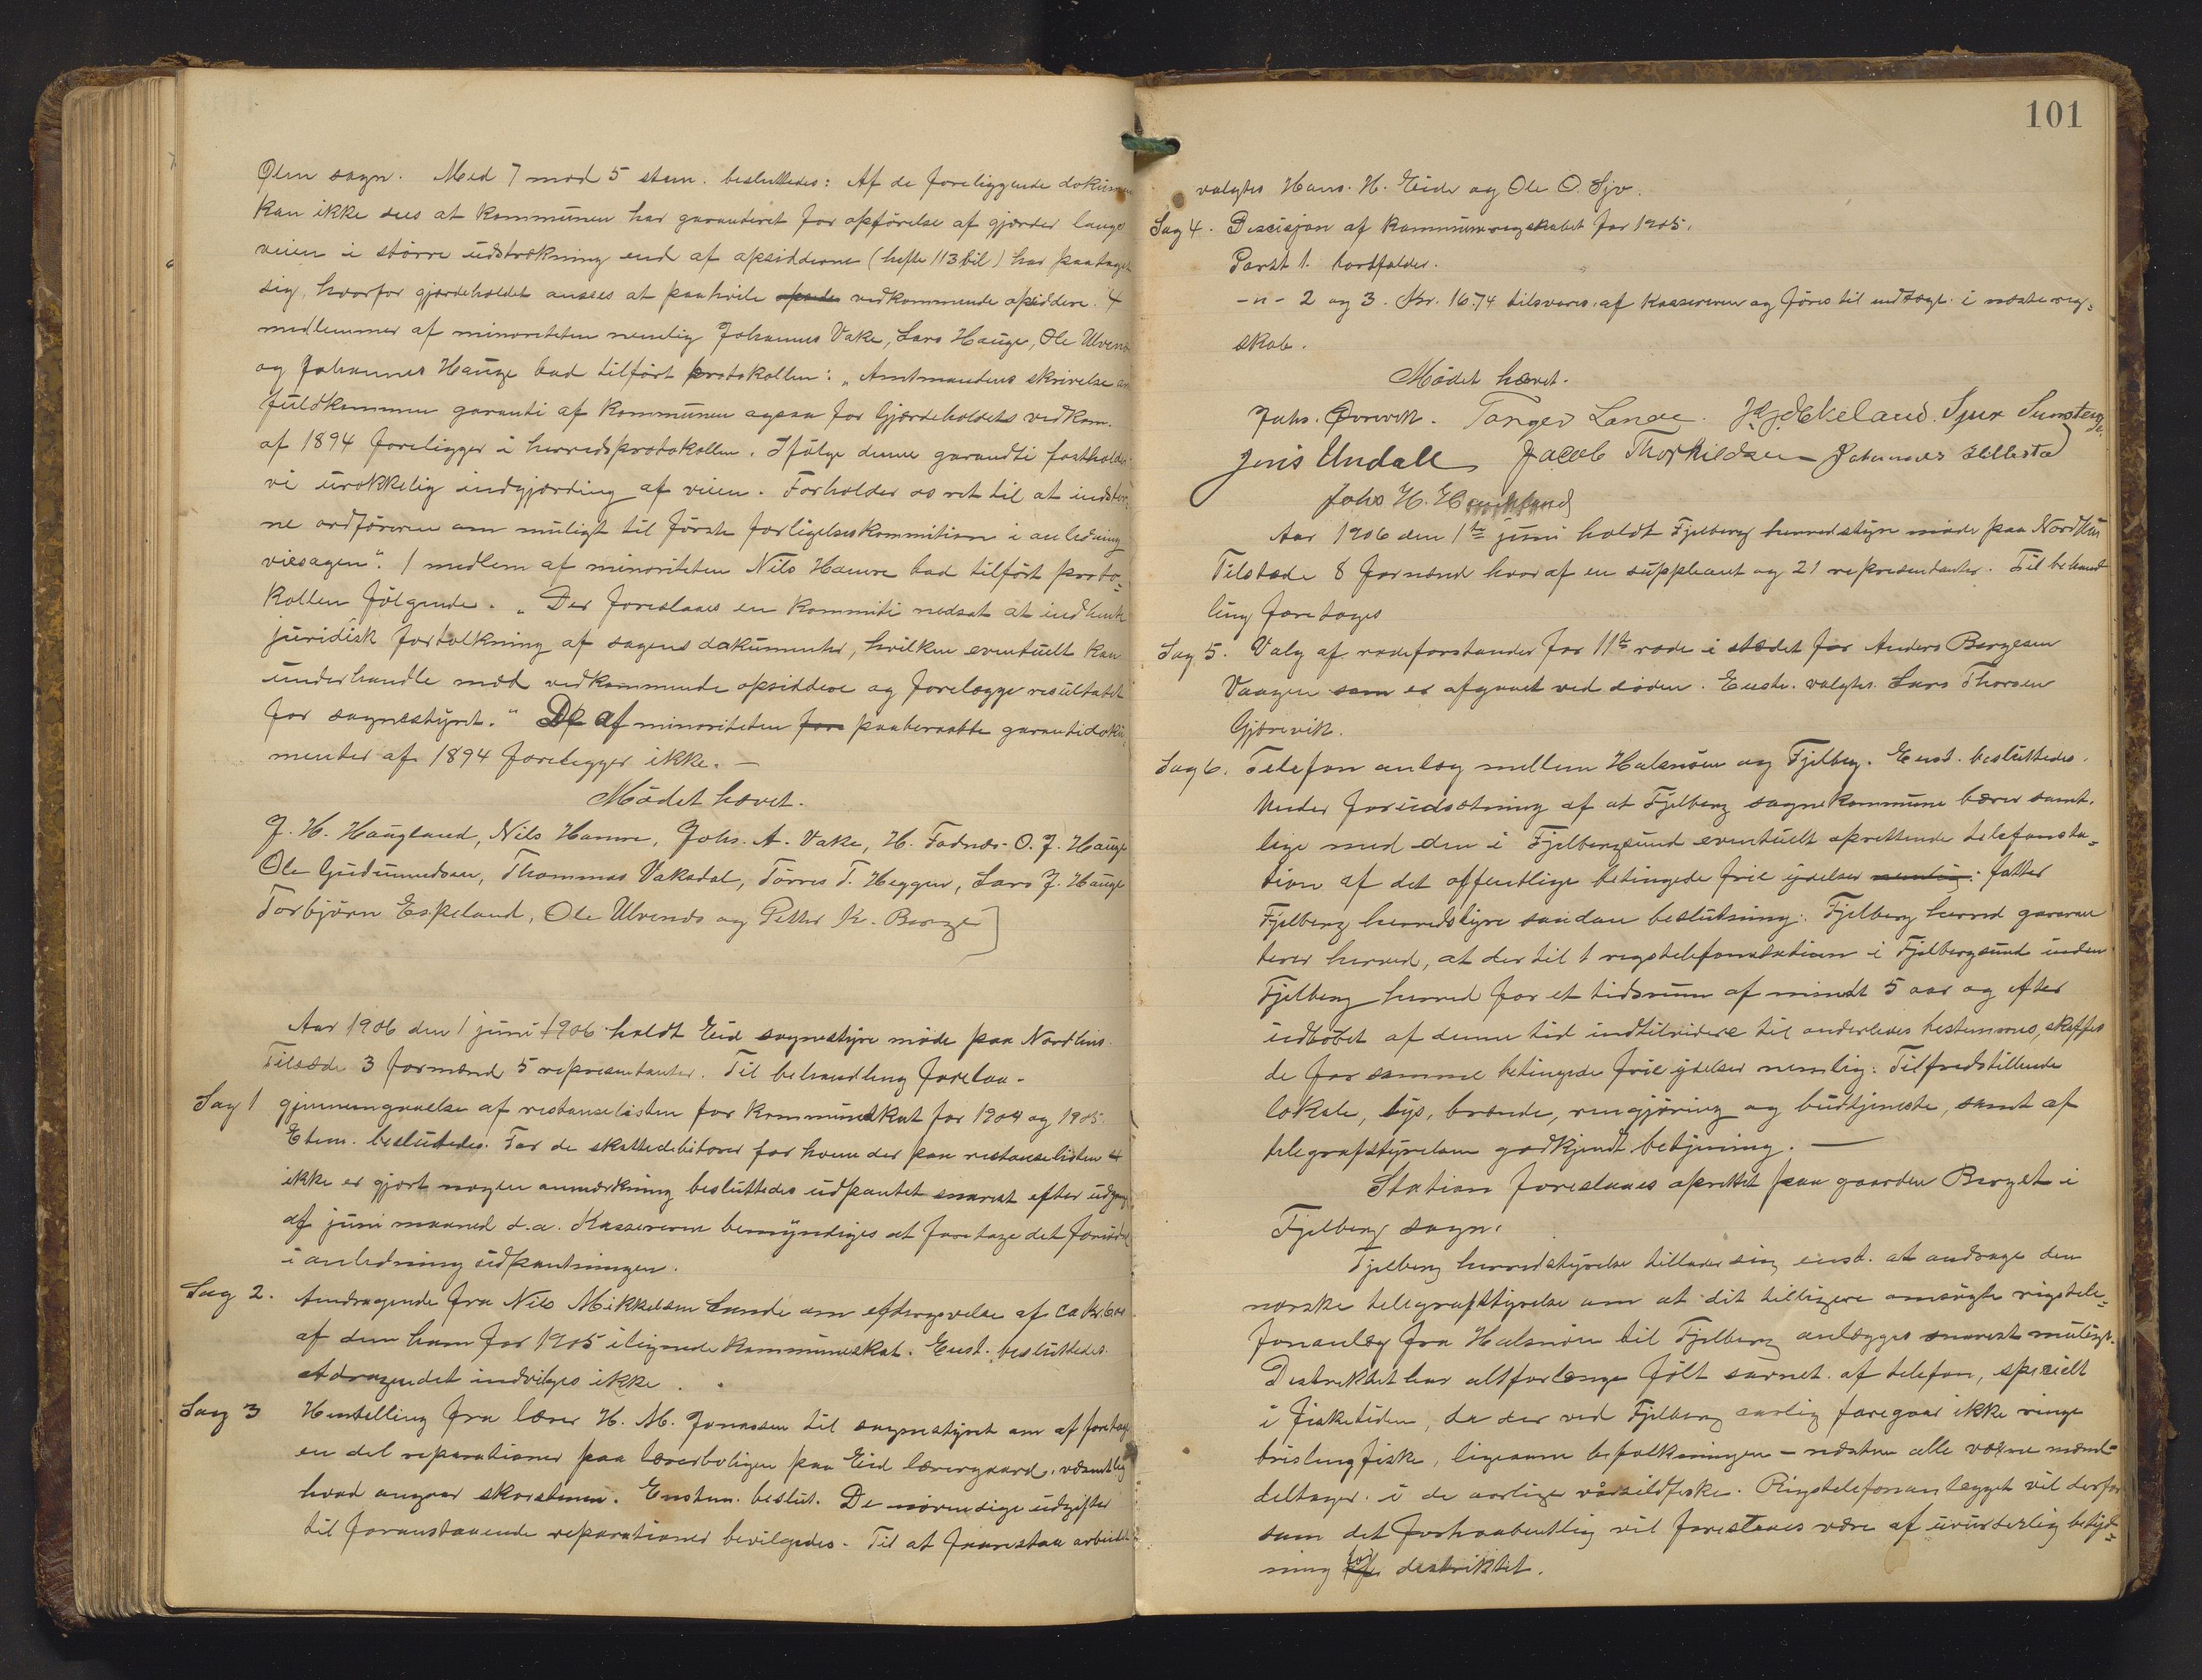 Ølen sogn. Med 7 mod 5 stem. besluttedes: Af de foreliggende dokumen
kan ikke sees at kommunen har garanderet for opförelse af gjærder langs
veien i större udstrækning end af opsidderne (hefte 113 bil) har paataget
sig, hvorfor gjærdeholdet ansees at paahvile opside vedkommende opsiddere. 4
medlemmer af minoriteten nemlig Johannes Vake, Lars Hauge, Ole Ulvenes
og Johannes Hauge bad tilfört protokollen: „Amtmandens skrivelse om
fuldkommen garanti af kommunen ogsaa for Gjærdeholdets vedkom.
af 1894 foreligger i herredsprotokollen. Ifölge denne garandti fastholder
vi urokkelig indgjærding af veien. Forholder os ret til at indstev¬
ne ordföreren om muligt til förste forligelseskommition i anledning
viesagen". 1 medlem af minoriteten Nils Hamre bad tilfört proto¬
kollen fölgende. „Der foreslaaes en kommiti nedsat at indhente
juridisk fortolkning af sagens dokumenter, hvilken eventuelt kan
underhandle med vedkommende opsiddere og forelægge resultatet
for sognestyret." De af minoriteten fore paaberaabte garantidoku¬
menter af 1894 forelegger ikke. —
Mödet hævet.
J. H. Haugland, Nils Hamre, Johs. A. Vake, H. Fadnæs. O. J. Hauge
Ole Gudmundsen, Thommas Vakadal, Törres T. Heggen, Lars J. Hauge
Torbjörn Espeland, Ole Ulvenes og Petter K. Berge
Aar 1906 den 1 juni 1906 holdt Eid sognestyre möde paa Nordhus.
Tilstede 3 formænd 5 representanter. Til behandling forelaa.
Sag 1 gjennemgaaelse af restanselisten for kommuneskat for 1904 og 1905.
Estem. besluttedes. For de skattedebitorer for hvem der paa restanselisten
ikke er gjort nogen anmærkning besluttedes udpantet snarest efter udgang
af juni maaned d.a. Kassereren bemyndiges at foretage det fornödne
i anledning udpantningen.
Sag 2. Andragende fra Nils Mikkelsen Sunde om eftergivelse af ca kr. 6.00
af den ham for 1905 ilignede kommuneskat. Enst. besluttedes.
Adragendet indvilges ikke.
Sag 3 Henstilling fra lærer H. M. Jonassen til sognestyret om af foretage
en del reparationer paa lærerboligen paa Eid lærergaard, væsentlig
hvad angaar skorstenen. Enstem. beslut. De növendige udgifter
til foranstaaende reparationer bevilgedes. Til at forrestaa arbeidet
101
valgtes Hans. H. Eide og Ole O. Sjo.
Sag 4. Descisjon af kommuneregnskabet for 1905.
Post 1. bortfalder.
-n- 2 og 3. Kr. 16.74 tilsvares af kassereren og föres til indtægt i næste reg¬
skab.
Mödet hævet.
Johs. Örrevik. Torger Lange. H. J. Ekeland. Sjur Sunste
Jens Undall Jacob Thorkildsen Johannes Hellestad
Johs H.
Aar 1906 den 1te juni holdt Fjelberg herredstyre möde paa Nordhus
Tilstede 8 formænd hvoraf en suppleant og 21 representanter. Til behand
ling foretoges
Sag 5. Valg af rodeforstander for 11te rode i stædet for Anders Bergesen
Vaagen som er afgaaet ved döden. Enste. valgtes Lars Thorsen
Gjörevik.
Sag 6. Telefon anlæg mellem Halsnöen og Fjelberg. Enst. besluttedes.
Under forudsætning af at Fjelberg sognekommune bærer samt¬
lige med den i Fjelbergsund eventuelt oprettende telefonsta¬
tion af det offentlige betingede frie ydelser nemlig: fatter
Fjelberg herredstyre saadan beslutning: Fjelberg herred garan
terer herved, at der til 1 rigstelefonstation i Fjelbergsund inden
Fjelberg herred for et tidsrum af mindt 5 aar og efter
udlöbet af denne tid indtilvidere til anderledes bestemmes, skaffes
de for samme betingede frie ydelser nemlig: Tilfredstillende
lokale, lys, brænde, rengjøring og budtjeneste, samt af
telegrafstyrelsen godkjendt betjening. —
Station foreslaaes oprettet paa gaarden Berget i
Fjelberg sogn.
Fjelberg herredstyrelse tillader sig enst. at andrage den
norske telegrafstyrelse om at det tilligere ansögte rigstele¬
fonanlæg fra Halsnöen til Fjelberg anlægges snarest muligt.
Destriktet har altforlænge fölt savnet af telefon, specielt
i fisketiden, da der ved Fjelberg aarlig foregaar ikke ringe
brislingfiske, ligesom befolkningen - næsten alle voxne mænd -
deltager i de aarlige vårsildfiske. Rigstelefonanlægget vil derfor
som det forhaabentlig vil forestaaes være af uvurderlig betyd¬
ning for destriktet.